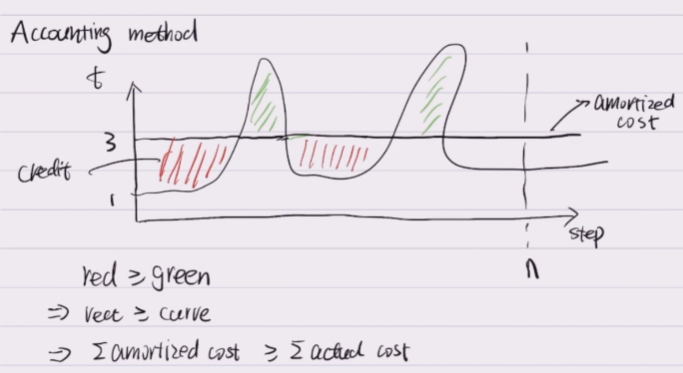 Accounting method
t
amortized
cost
3
credit
1
step
n
red ≥ green
⇒ rect ≥ curve
⇒ Σ amortized cost ≥ Σ actual cost